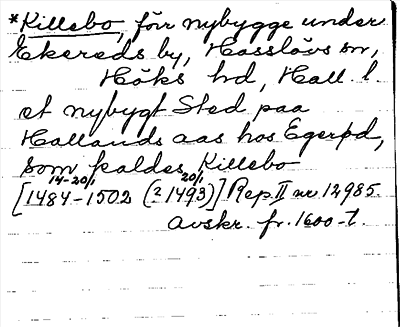 *Killebo, förr nybygge under
Ekereds by, Hasslövs sn,
Höks hd, Hall. l.
et nybygt Sted paa
Hallands aas hos Egerød,
som kaldes Killebo
14-20/1 20/1
[1484-1502 (?1493)] Rep. II nr 12985.
Avskr. fr. 1600-t.